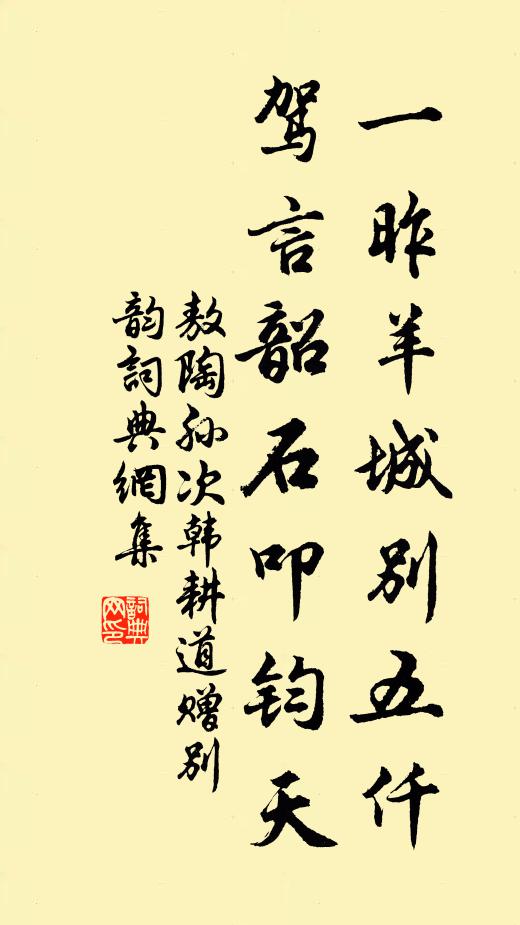 一昨羊城别五仟
驾言韶石叩钧天
敖陶孙次韩耕道赠别
韵詞典網集
詞典网印